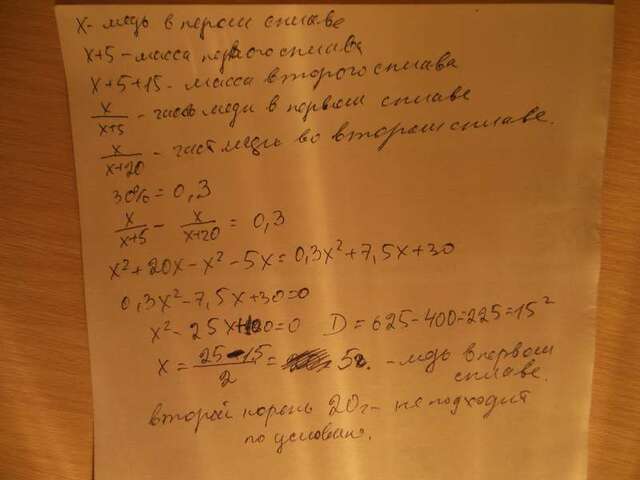 x - медь в первом сплаве
x+5 - масса первого сплава
x+5+15 - масса второго сплава
x/(x+5) - часть меди в первом сплаве
x/(x+20) - част меди во втором сплаве.
30% = 0,3
x/(x+5) - x/(x+20) = 0,3
x² + 20x - x² - 5x = 0,3x² + 7,5x + 30
0,3x² - 7,5x + 30 = 0
x² - 25x + 100 = 0 D = 625 - 400 = 225 = 15²
x = (25 - 15)/2 = 5г. - медь в первом
сплаве.
второй корень 20г - не подходит
по условию.